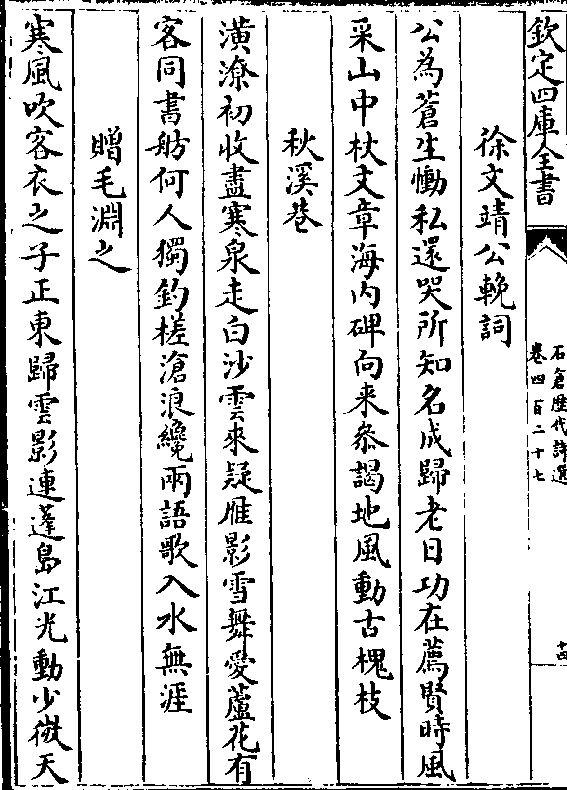 欽定四庫全書
石倉歷代詩選
卷四百二十七
十四
徐文靖公輓詞
公為蒼生慟私還哭所知名成歸老日功在薦賢時風
采山中杖文章海內碑向来叅謁地風動古槐枝
秋溪巷
潢潦初收盡寒泉走白沙雲來疑雁影雪舞愛蘆花有
客同書舫何人獨釣槎滄浪纔兩語歌入水無涯
贈毛淵之
寒風吹客衣之子正東歸雲影連蓬島江光動少微天